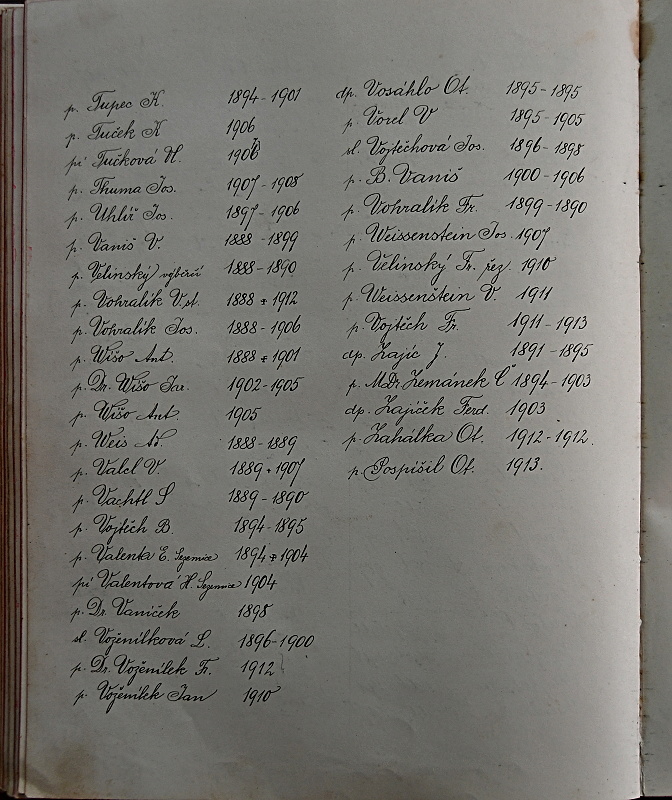 p. Tupec K. 1894-1901
p. Tuček K 1906
pí Tučková H. 1906
p. Thuma Jos. 1907-1908
p. Uhlíř Jos. 1897-1906
p. Vaniš V. 1888-1899
p. Velinský výběrčí 1888-1890
p. Vohralík V. st. 1888 + 1912
p. Vohralík Jos. 1888-1906
p. Wišo Ant. 1888 + 1901
p. Dr. Wišo 1902-1905
p. Wišo Ant. 1905
p. Weis 1888-1889
p. Valcl V. 1889 + 1907
p. Vachtl S 1889-1890
p. Vojtěch B. 1894-1895
p. Valenta E. Sezemice 1894 + 1904
pí Valentová H. Sezemice 1904
p. Dr. Vaníček 1898
sl. Voženílková L. 1896-1900
p. Dr. Voženílek Fr. 1912
p. Voženílek Jan 1910
dp. Vosáhlo Ot. 1895-1895
p. Vorel V 1895-1905
sl. Vojtěchová Jos. 1896-1898
p. B. Vaniš 1900-1906
p. Vohralík Fr. 1899-1890
p. Weissenstein Jos. 1907
p. Velinský Fr. řez. 1910
p. Weissenštein V. 1911
p. Vojtěch Fr. 1911-1913
dp. Zajíc J. 1891-1895
p. MDr. Zemánek Č 1894-1903
dp. Zajíček Ferd. 1903
p. Zahálka Ot. 1912-1912.
p. Pospíšil Ot. 1913.